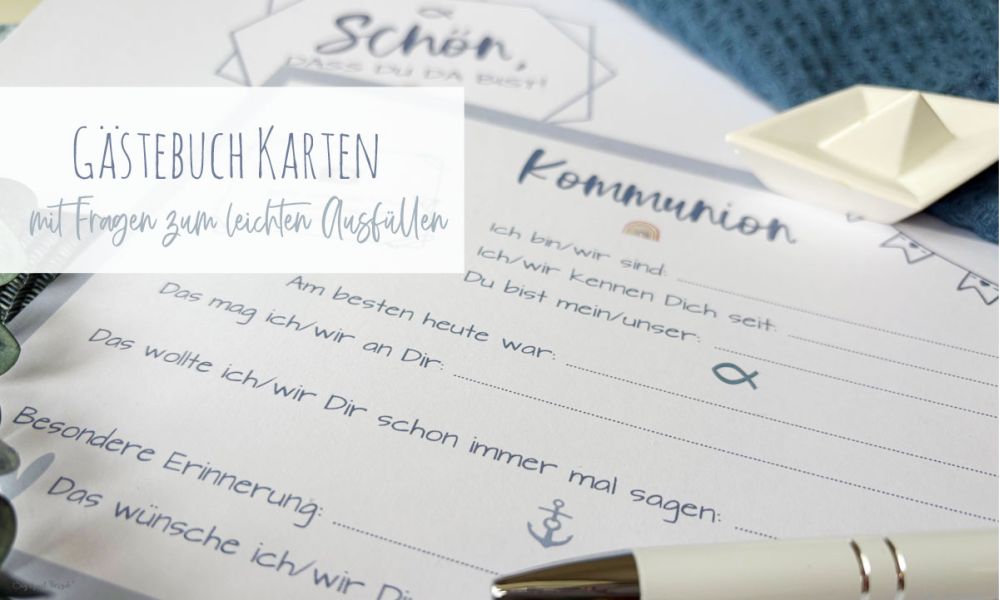 Schön,
DASS DU DA BIST!
GÄSTEBUCH KARTEN
mit Fragen zum leichten Ausfüllen
Kommunion
Ich bin/wir sind:
Ich/wir kennen Dich seit:
Du bist mein/unser:
Am besten heute war:
Das mag ich/wir an Dir:
Das wollte ich/wir Dir schon immer mal sagen:
Besondere Erinnerung:
Das wünsche ich/wir